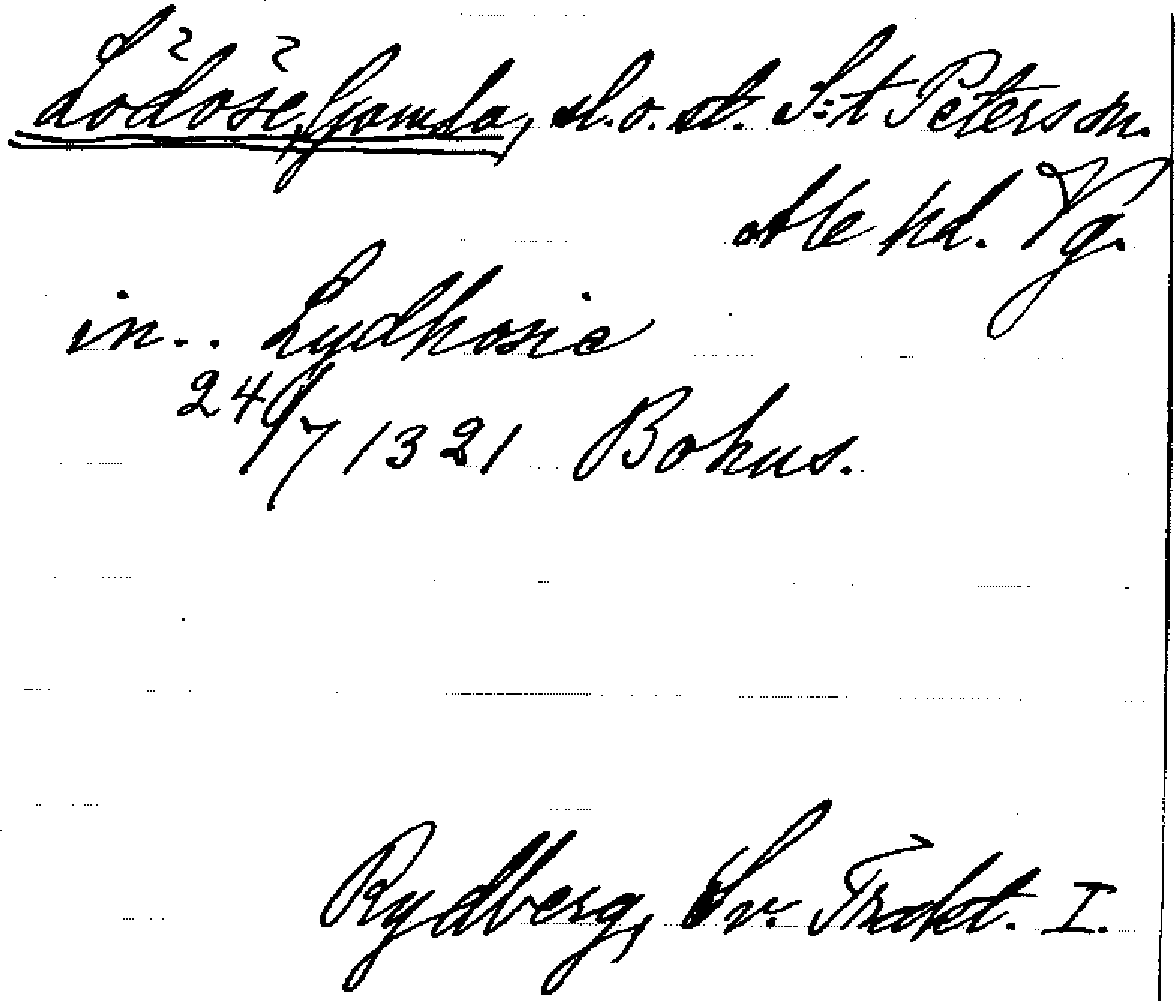 Lödöse, Gamla, sl.o.st. S:t Peters sn.
Ale hd. Vg.
in.. Lydhosie
24/7 1321 Bohus.
Rydberg, Sv. Trakt. I.